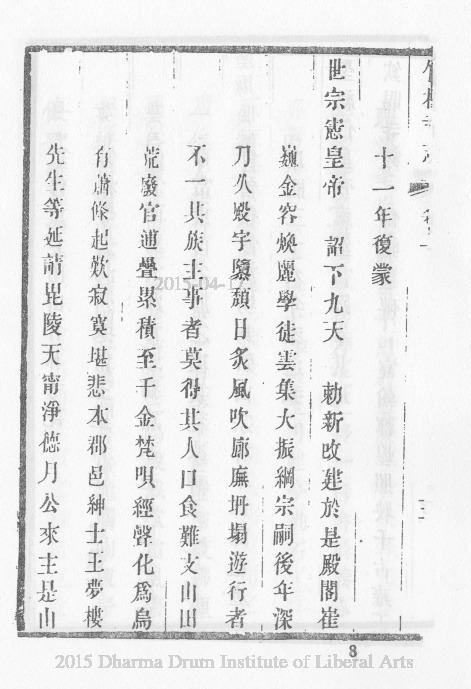 十一年復蒙
世宗憲皇帝 詔下九天 勅新改建於是殿閣崔
巍金容煥麗學徒雲集大振綱宗嗣後年深
刀久殿宇隳頹日炙風吹廊廡坍塌遊行者
不一其族主事者莫得其人口食難支山田
荒廢官逋疊累積至千金梵唄經聲化為烏
有蕭條起歎寂寞堪悲本郡邑紳士王夢樓
先生等延請毘陵天甯淨德月公來主是山
2015-04-17
8
2015 Dharma Drum Institute of Liberal Arts